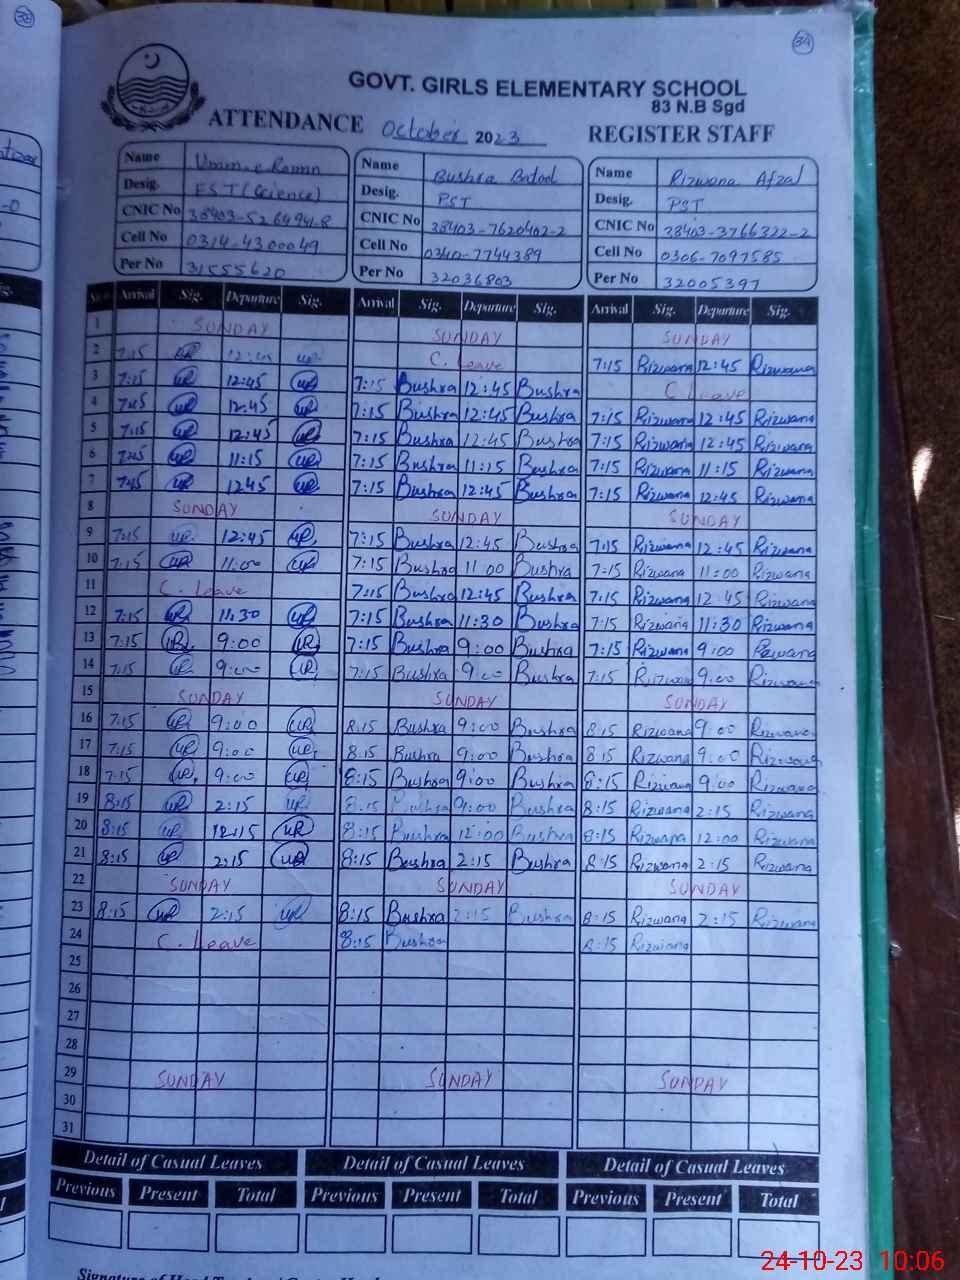 34
GOVT. GIRLS ELEMENTARY SCHOOL
83 N.B Sgd
ATTENDANCE October 2023 REGISTER STAFF
Name Name Bushra Batool Name Rizwana Afzal
Desig. EST (Science) Desig. PST Desig. PST
CNIC No CNIC No 38403-7620402-2 CNIC No 38403-3766322-2
Cell No 0314-4300049 Cell No 0340-7744389 Cell No 0306-7097585
Per No 31555620 Per No 32036803 Per No 32005397
Arrival Sig. Departure Sig. Arrival Sig. Departure Sig. Arrival Sig. Departure Sig.
1 SUNDAY SUNDAY SUNDAY
2 7:15 UR 12:45 UR C. Leave 7:15 Rizwana 12:45 Rizwana
3 7:15 UR 12:45 UR 7:15 Bushra 12:45 Bushra C Leave
4 7:15 UR 12:45 UR 7:15 Bushra 12:45 Bushra 7:15 Rizwana 12:45 Rizwana
5 7:15 UR 12:45 UR 7:15 Bushra 12:45 Bushra 7:15 Rizwana 12:45 Rizwana
6 7:15 UR 11:15 UR 7:15 Bushra 11:15 Bushra 7:15 Rizwana 11:15 Rizwana
7 7:15 UR 12:45 UR 7:15 Bushra 12:45 Bushra 7:15 Rizwana 12:45 Rizwana
8 SUNDAY SUNDAY SUNDAY
9 7:15 UR 12:45 UR 7:15 Bushra 12:45 Bushra 7:15 Rizwana 12:45 Rizwana
10 7:15 UR 11:00 UR 7:15 Bushra 11:00 Bushra 7:15 Rizwana 11:00 Rizwana
11 C. Leave 7:15 Bushra 12:45 Bushra 7:15 Rizwana 12:45 Rizwana
12 7:15 UR 11:30 UR 7:15 Bushra 11:30 Bushra 7:15 Rizwana 11:30 Rizwana
13 7:15 UR 9:00 UR 7:15 Bushra 9:00 Bushra 7:15 Rizwana 9:00 Rizwana
14 7:15 UR 9:00 UR 7:15 Bushra 9:00 Bushra 7:15 Rizwana 9:00 Rizwana
15 SUNDAY SUNDAY SUNDAY
16 7:15 UR 9:00 UR 8:15 Bushra 9:00 Bushra 8:15 Rizwana 9:00 Rizwana
17 7:15 UR 9:00 UR 8:15 Bushra 9:00 Bushra 8:15 Rizwana 9:00 Rizwana
18 7:15 UR 9:00 UR 8:15 Bushra 9:00 Bushra 8:15 Rizwana 9:00 Rizwana
19 8:15 UR 2:15 UR 8:15 Bushra 9:00 Bushra 8:15 Rizwana 2:15 Rizwana
20 8:15 UR 12:15 UR 8:15 Bushra 12:00 Bushra 8:15 Rizwana 12:00 Rizwana
21 8:15 UR 2:15 UR 8:15 Bushra 2:15 Bushra 8:15 Rizwana 2:15 Rizwana
22 SUNDAY SUNDAY SUNDAY
23 8:15 UR 2:15 UR 8:15 Bushra 2:15 Bushra 8:15 Rizwana 2:15 Rizwana
24 C. Leave 8:15 Bushra 8:15 Rizwana
25
26
27
28
29 SUNDAY SUNDAY SUNDAY
30
31
Detail of Casual Leaves Detail of Casual Leaves Detail of Casual Leaves
Previous Present Total Previous Present Total Previous Present Total
24-10-23 10:06